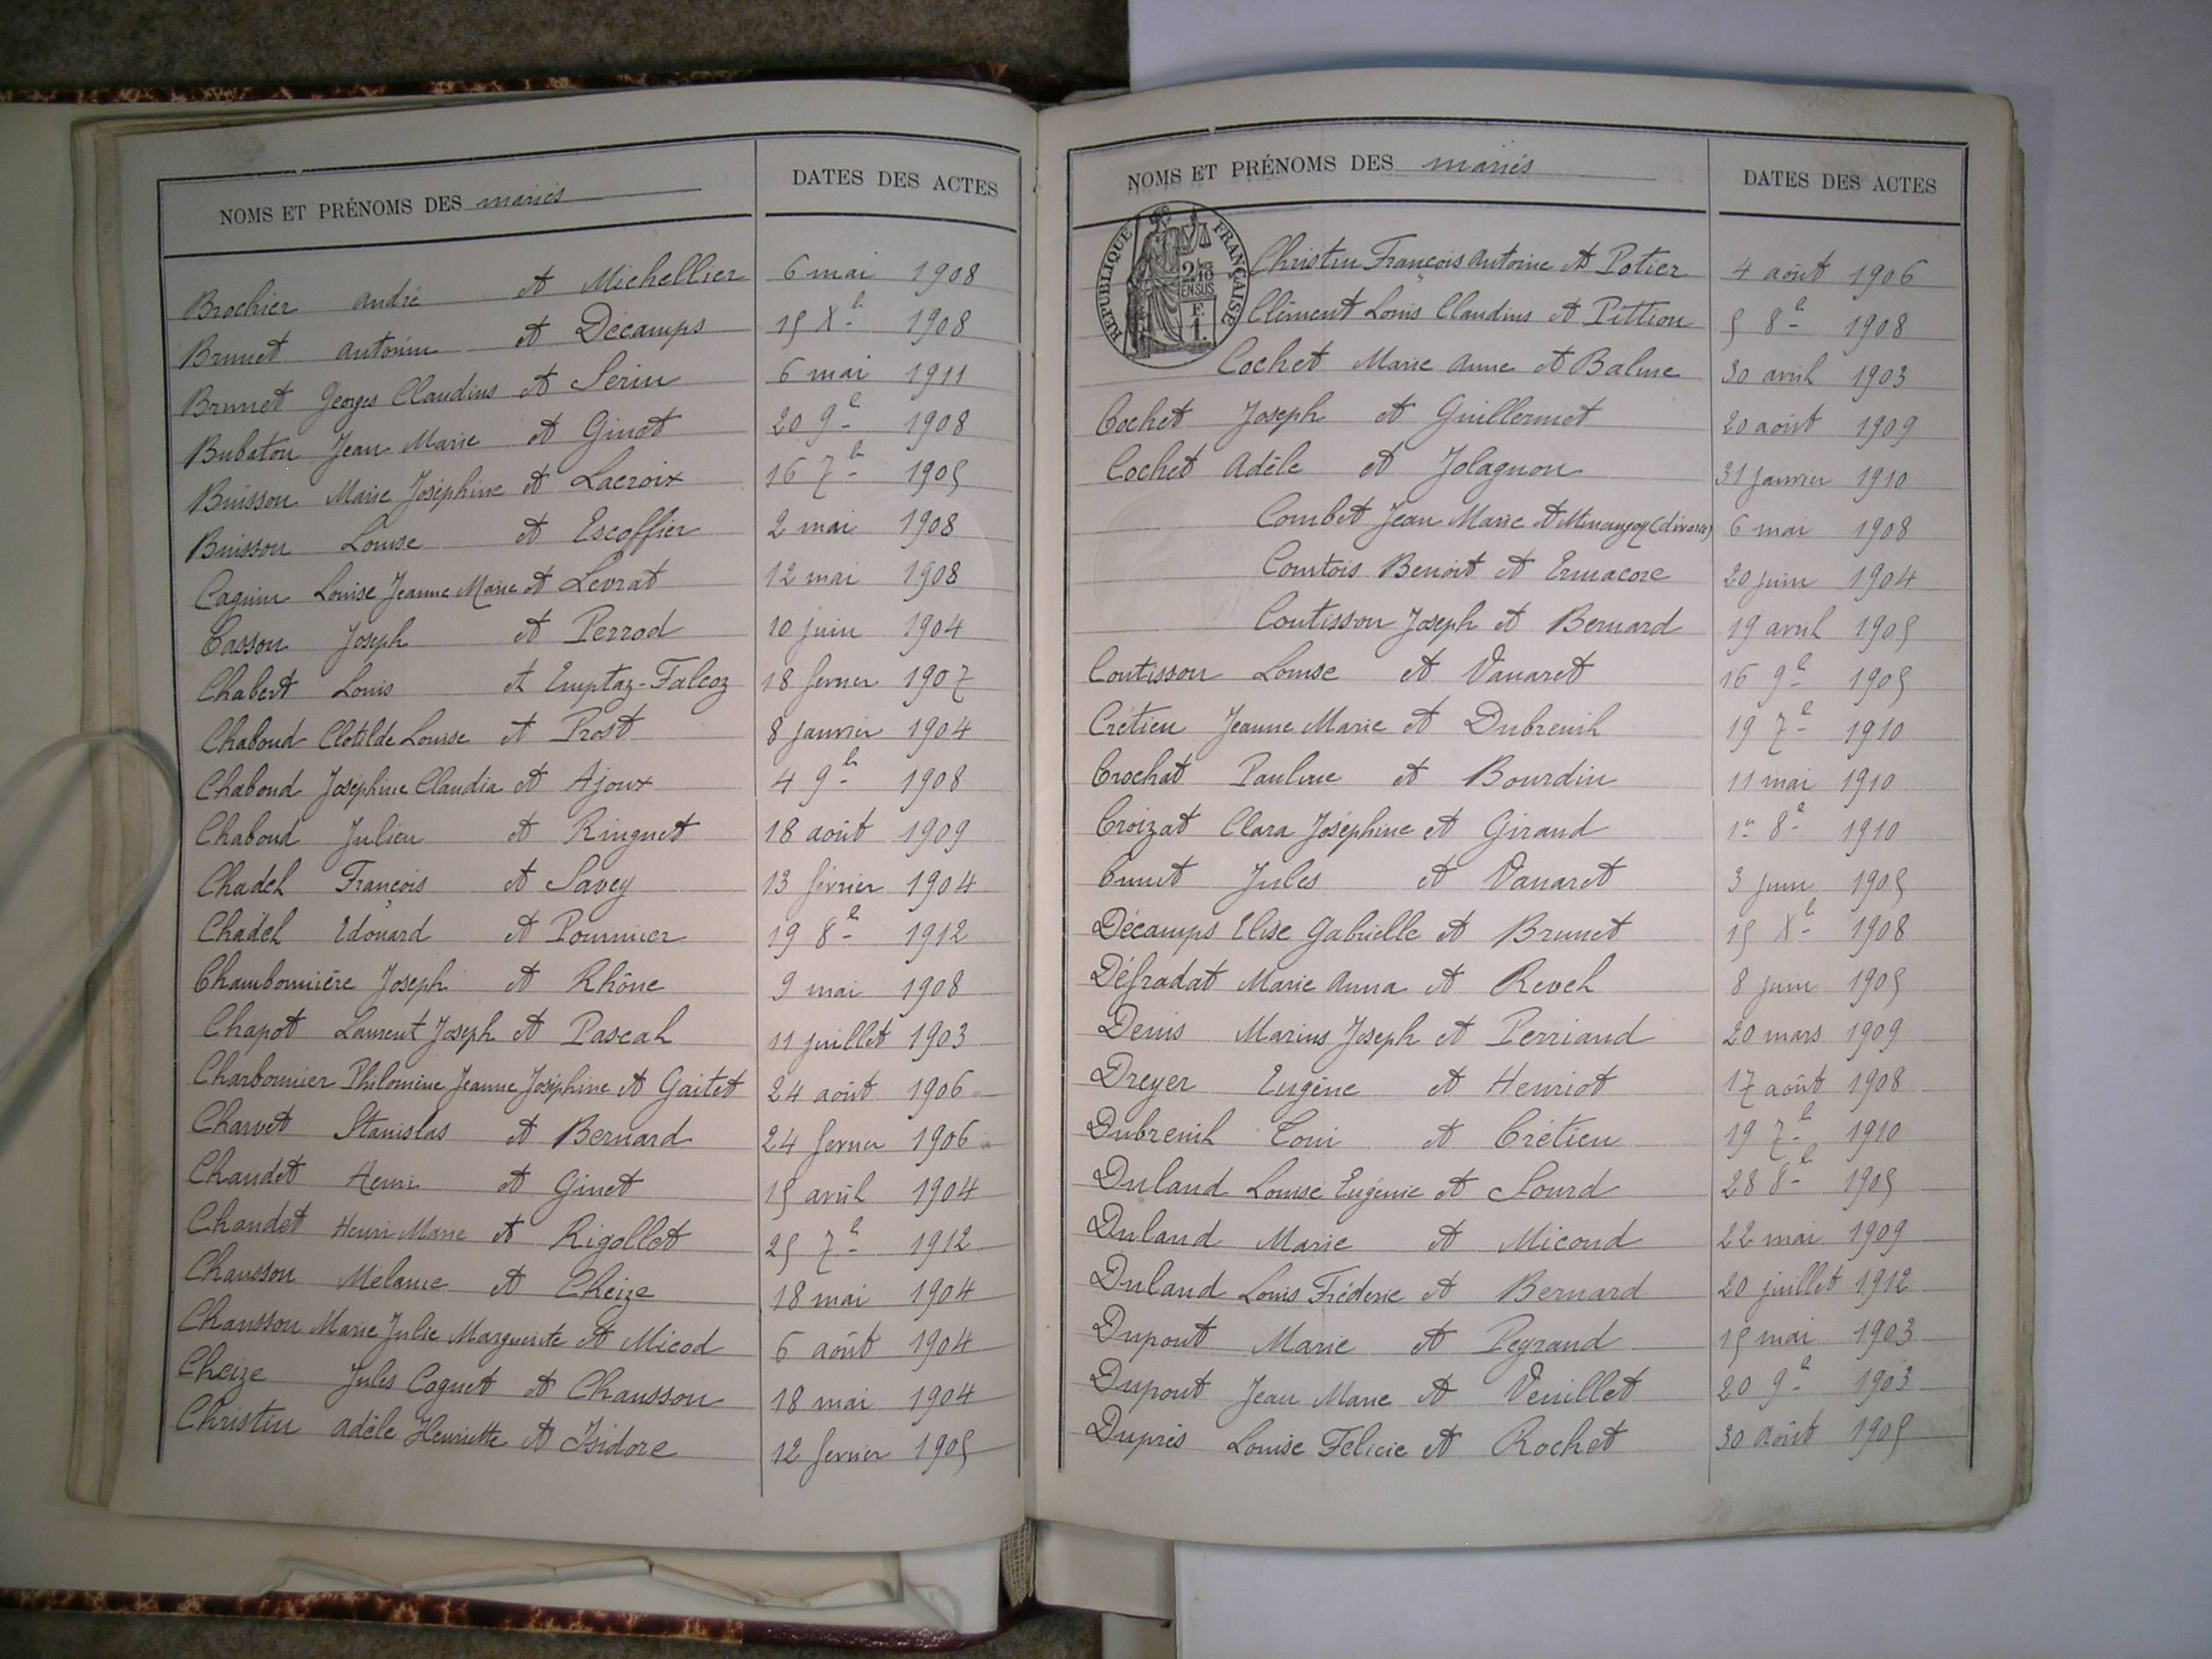 NOMS ET PRÉNOMS DES mariés
DATES DES ACTES
Brochier André et Michellier 6 mai 1908
Brunet Antonin et Décamps 15 Xb 1908
Brunet Georges Claudius et Serin 6 mai 1911
Bubaton Jean Marie et Ginet 20 9b 1908
Buisson Marie Joséphine et Lacroix 16 7b 1905
Buisson Louise et Escoffier 2 mai 1908
Cagnin Louise Jeanne Marie et Levrat 12 mai 1908
Casson Joseph et Perrod 10 juin 1904
Chabert Louis et Emptaz-Falcoz 18 février 1907
Chaboud Clotilde Louise et Prost 8 janvier 1904
Chaboud Joséphine Claudia et Ajoux 4 9b 1908
Chaboud Julien et Ringuet 18 août 1909
Chadel François et Savey 13 février 1904
Chadel Edouard et Pommier 19 8b 1912
Chambonnière Joseph et Rhône 9 mai 1908
Chapot Laurent Joseph et Pascal 11 juillet 1903
Charbonnier Philomène Jeanne Joséphine et Gaitet 24 août 1906
Charvet Stanislas et Bernard 24 février 1906
Chaudet Henri et Ginet 15 avril 1904
Chaudet Henri Marie et Rigollet 25 7b 1912
Chausson Mélanie et Cheize 18 mai 1904
Chausson Marie Julie Marguerite et Micod 6 août 1904
Cheize Jules Coquet et Chausson 18 mai 1904
Christin Adèle Henriette et Isidore 12 février 1905
NOMS ET PRÉNOMS DES mariés
DATES DES ACTES
REPUBLIQUE FRANÇAISE
2/10
EN SUS
F.
1.
Christin François Antoine et Potier 4 août 1906
Clément Louis Claudius et Pittion 5 8b 1908
Cochet Marie Anne et Balme 30 avril 1903
Cochet Joseph et Guillermet 20 août 1909
Cochet Adèle et Jolagnon 31 janvier 1910
Combet Jean Marie et (divorce) 6 mai 1908
Comtois Benoît et Ermacore 20 juin 1904
Coutisson Joseph et Bernard 19 avril 1905
Coutisson Louise et Vanaret 16 9b 1905
Crétien Jeanne Marie et Dubreuil 19 7b 1910
Crochat Pauline et Bourdin 11 mai 1910
Croizat Clara Joséphine et Giraud 1er 8b 1910
Cunit Jules et Vanaret 3 juin 1905
Décamps Elise Gabrielle et Brunet 15 Xb 1908
Défradat Marie Anna et Revel 8 juin 1905
Denis Marius Joseph et Perriand 20 mars 1909
Dreyer Eugène et Henriot 17 août 1908
Dubreuil Toni et Crétien 19 7b 1910
Duland Louise Eugénie et Sourd 28 8b 1905
Duland Marie et Micoud 22 mai 1909
Duland Louis Fréderic et Bernard 20 juillet 1912
Dupont Marie et Peyraud 15 mai 1903
Dupont Jean Marie et Venillet 20 9b 1903
Duprés Louise Felicie et Rochet 30 Août 1905